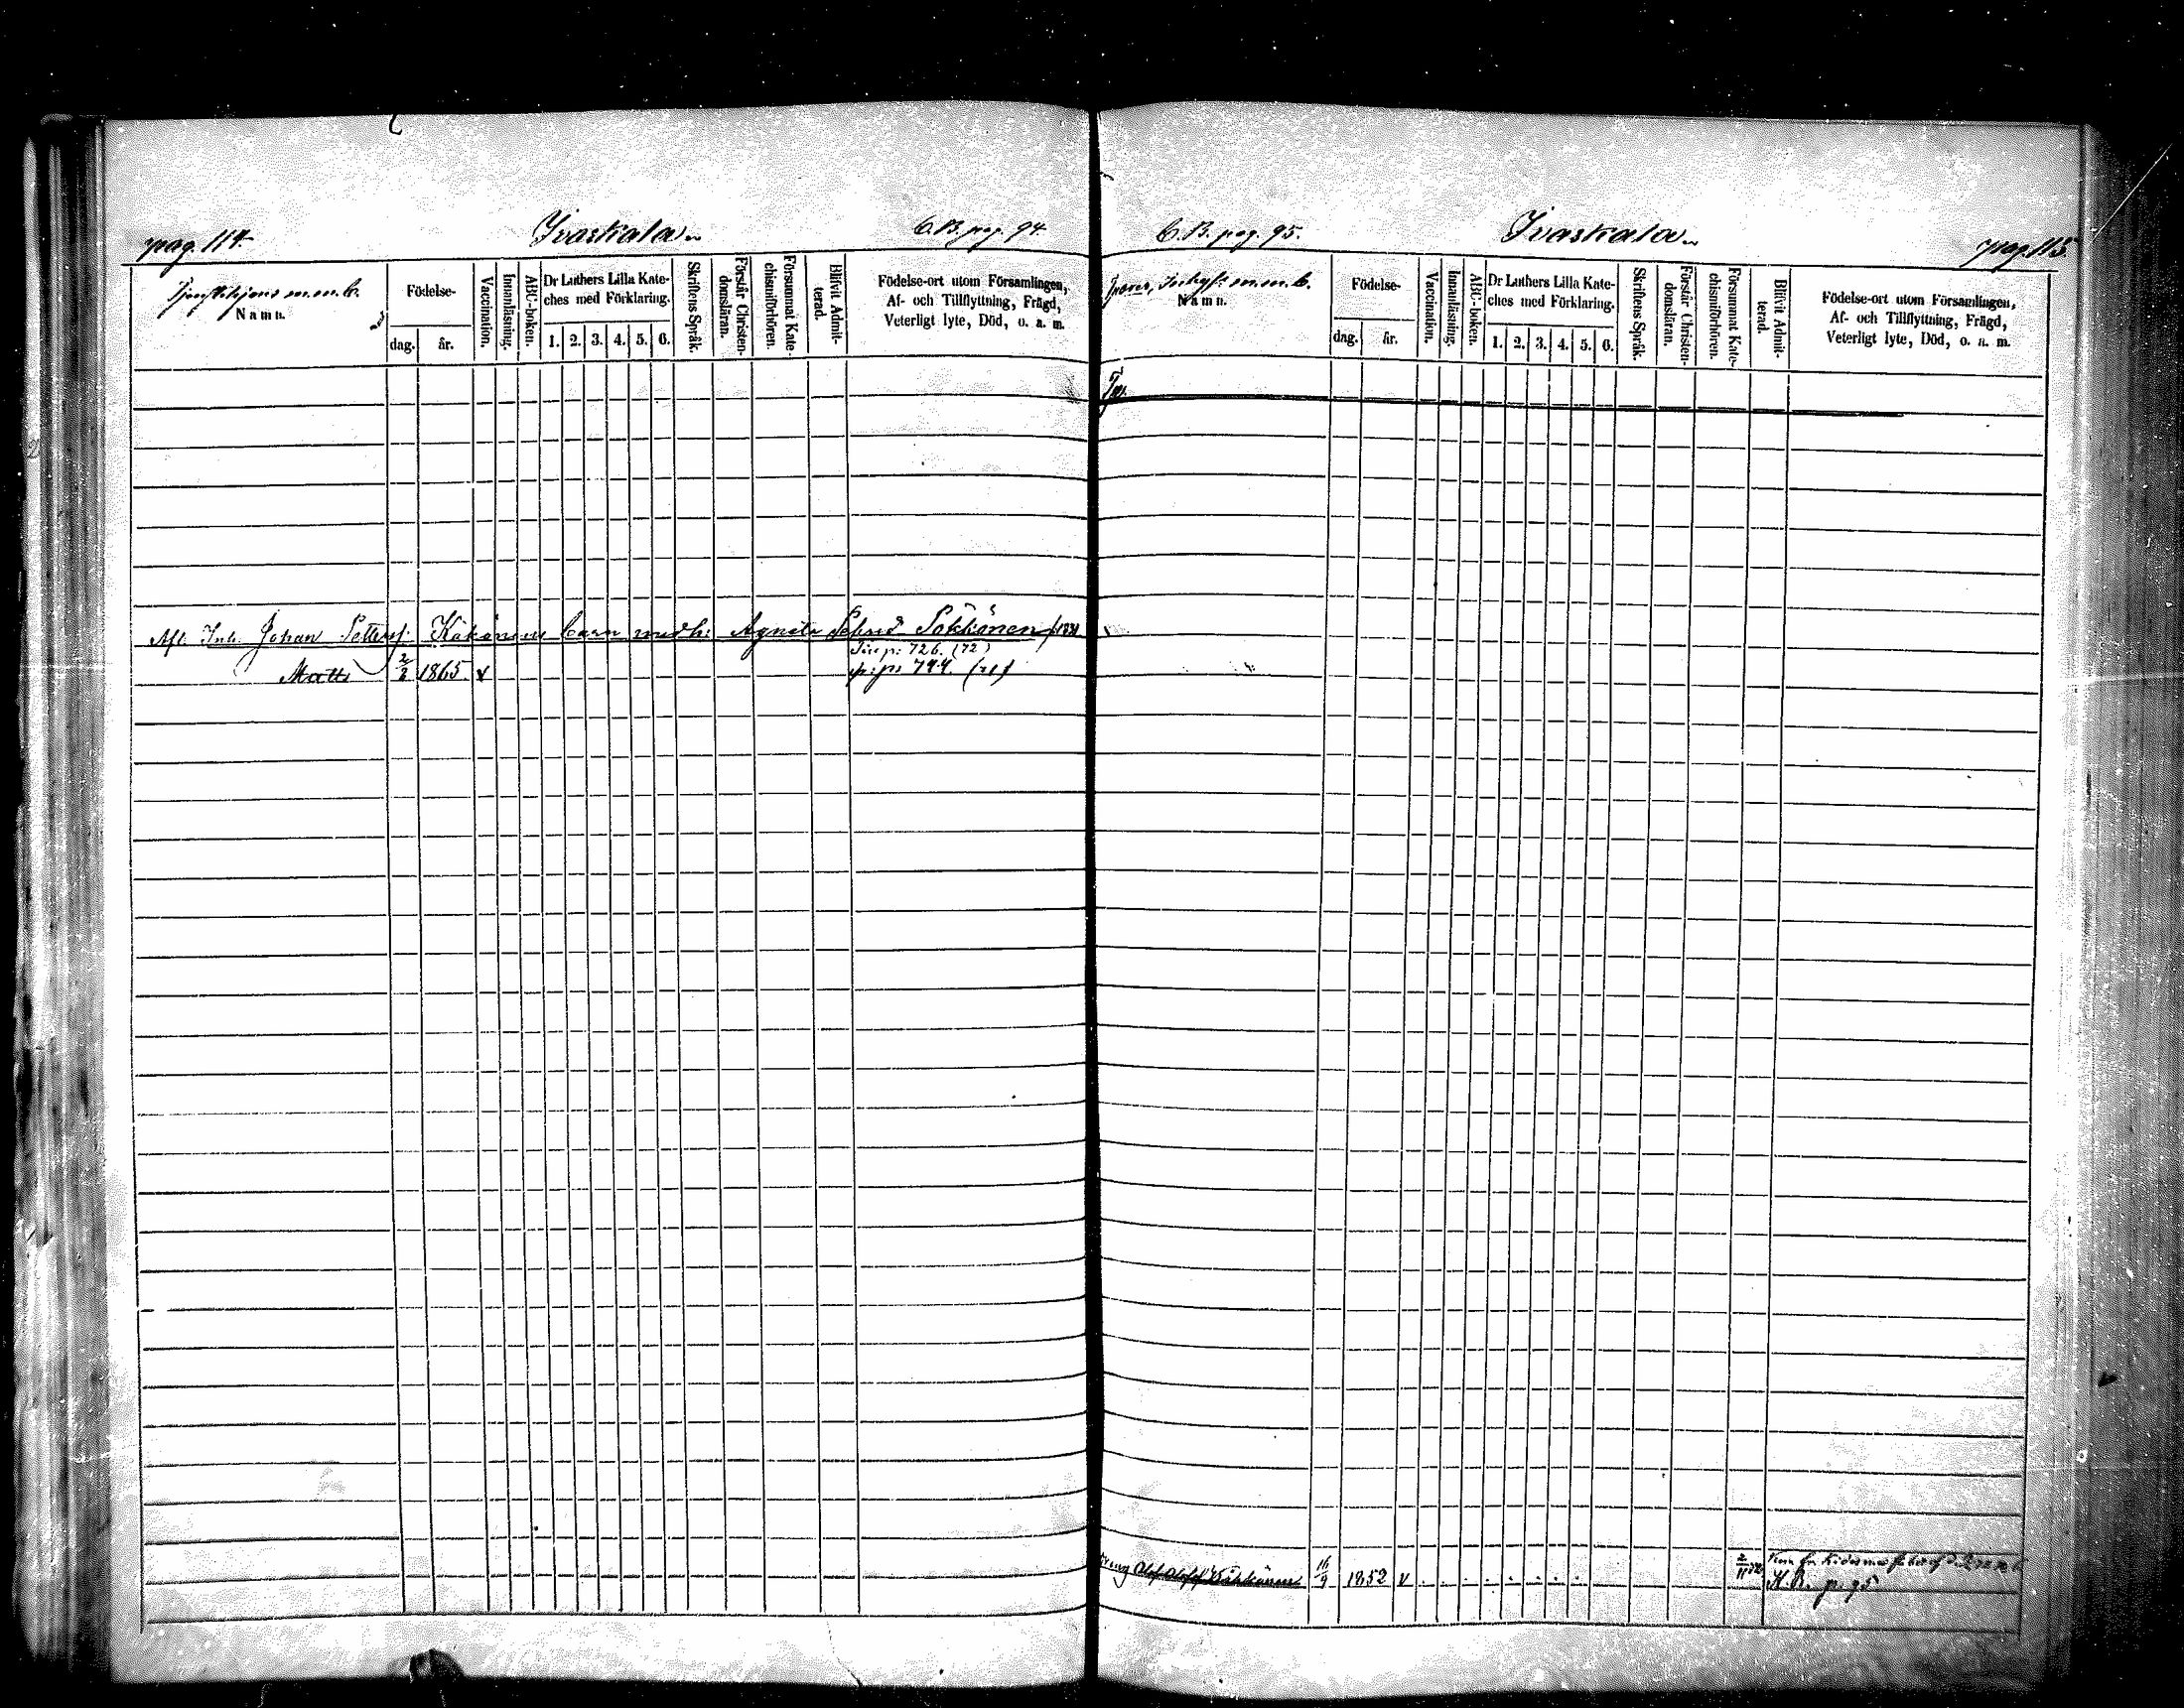 pag. 114.
Ivaskala
C.B. pag. 94.
Tjenstehjons m.m.b.
Namn.
Födelse-
dag.
år.
Vaccination.
Innanläsning.
ABC-boken.
Dr Luthers Lilla Kate-
ches med Förklaring.
1. 2. 3. 4. 5. 6.
Skriftens Språk.
Förstår Christen-
domsläran.
Försummat Kate-
chismiförhören.
Blifvit Admit-
terad.
Födelse-ort utom Församlingen,
Af- och Tillflyttning, Frägd,
Veterligt lyte, Död, o. a. m.
Afl. Inh. Johan Petterss: Kákönens barn medh: Agneta Pehrsd Pökkönen
p: 726. (72)
Matts 2/2 1865 v p: 744.
C.B. pag. 95.
Ivaskala
pag. 115.
m.m.b.
Namn.
Födelse-
dag.
år.
Vaccination.
Innanläsning.
ABC-boken.
Dr Luthers Lilla Kate-
ches med Förklaring.
1. 2. 3. 4. 5. 6.
Skriftens Språk.
Förstår Christen-
domsläran.
Försummat Kate-
chismiförhören.
Blifvit Admit-
terad.
Födelse-ort utom Församlingen,
Af- och Tillflyttning, Frägd,
Veterligt lyte, Död, o. a. m.
Olof 16/9 1852 v 2/11 72 K.B. p. 95